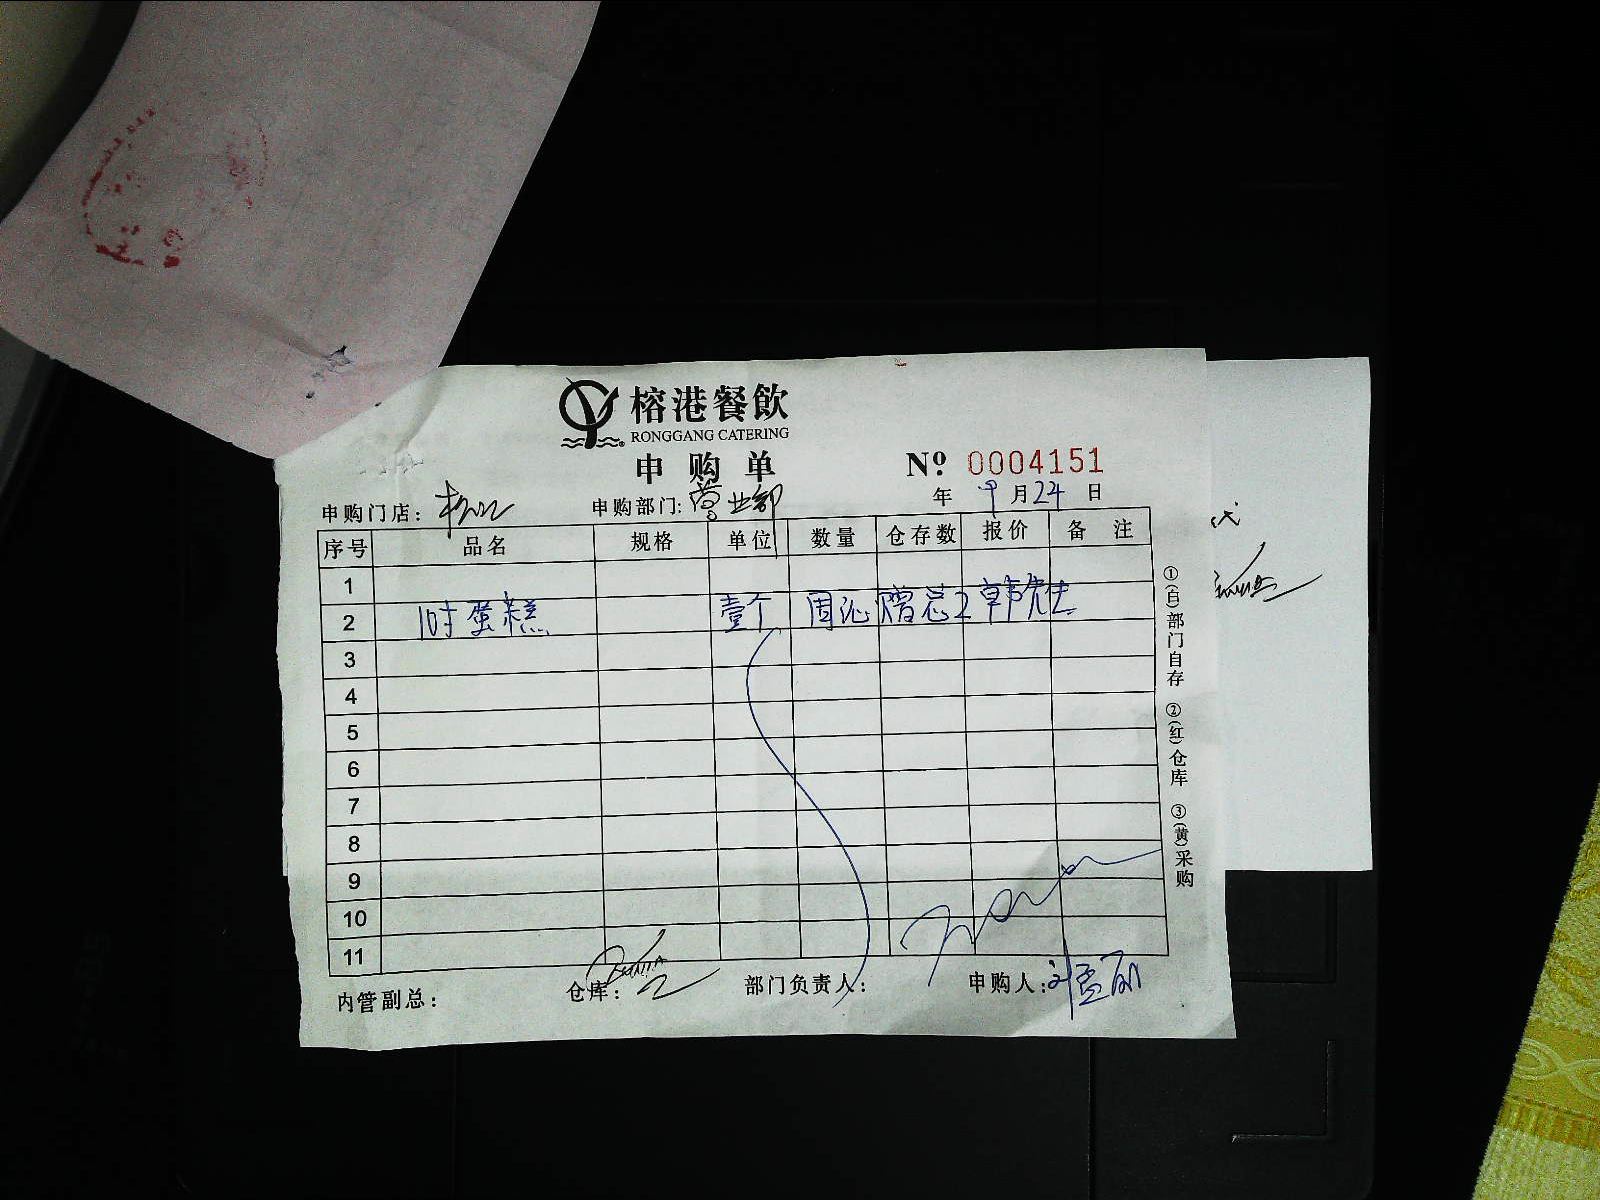 榕港餐飲
RONGGANG CATERING
申购单
№ 0004151
申购门店：松江 申购部门:营业部 年 9月24日
序号 品名 规格 单位 数量 仓存数 报价 备注
1
2 10寸蛋糕 壹个
3
4
5
6
7
8
9
10
11
内管副总： 仓库： 部门负责人： 申购人：
①(白)部门自存 ②(红)仓库 ③(黄)采购